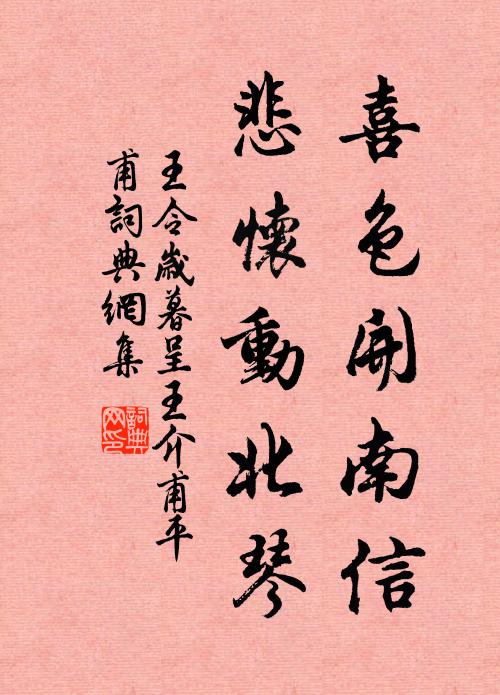 喜色開南信
悲懷動北琴
王令歲暮呈王介甫平
甫詞典網集
詞典網印